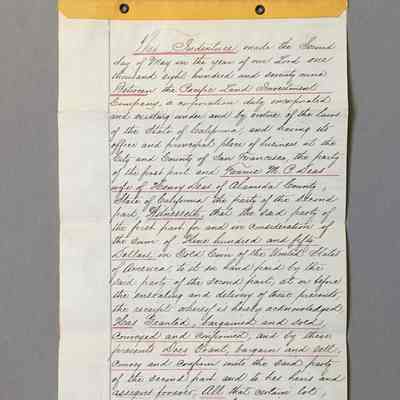 This Indenture made the Second
day of May in the year of our Lord one
thousand eight hundred and seventy nine
Between the Pacific Land Investment
Company, a corporation duly incorporated
and existing under and by virtue of the laws
of the State of California, and having its
office and principal place of business at the
City and County of San Francisco, the party
of the first part and Fannie M. P. Deas
wife of Henry Deas of Alameda County,
State of California the party of the second
part, Witnesseth, that the said party of
the first part for and in consideration of
the Sum of Nine hundred and fifty
Dollars in Gold Coin of the United States
of America to it in hand paid by the
said party of the second part, at or before
the ensealing and delivery of these presents,
the receipt whereof is hereby acknowledged,
Has Granted, bargained and sold,
conveyed and confirmed, and by these
presents Does Grant, bargain and sell,
convey and confirm unto the said party
of the second part and to her heirs and
assigns forever, All that certain lot,